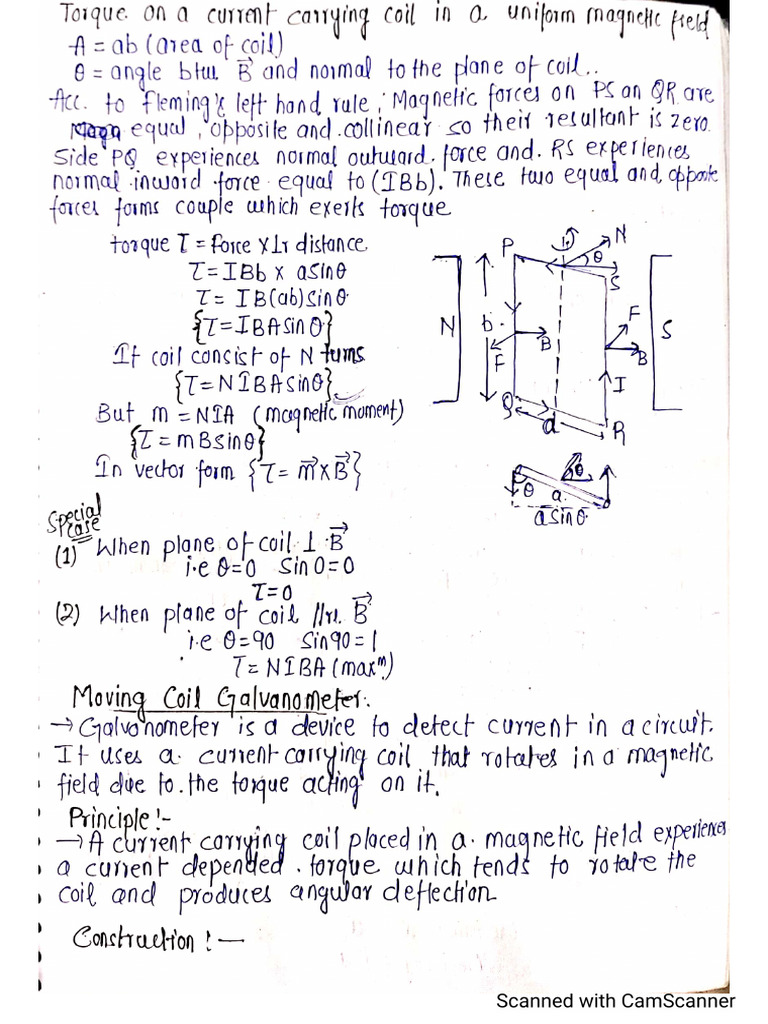 Torque on a current carrying coil in a uniform magnetic field
A = ab (area of coil)
θ = angle btw B⃗ and normal to the plane of coil..
Acc. to Fleming's left hand rule, Magnetic forces on PS an QR are
equal, opposite and collinear so their resultant is zero.
Side PQ experiences normal outward force and RS experiences
normal inward force equal to (IBb). These two equal and opposite
forces forms couple which exerts torque
torque τ = force × ⊥r distance
τ = IBb × a sinθ
τ = IB(ab) sinθ
{τ = IBA sinθ}
If coil consist of N turns
{τ = NIBA sinθ}
But m = NIA (magnetic moment)
{τ = mB sinθ}
In vector form {τ = m⃗ × B⃗}
P
N
θ
S
N
b
F
B
F
B
S
I
Q
a
R
θ
θ
a
a sinθ
Special case
(1) When plane of coil ⊥ B⃗
i.e θ = 0 Sin 0 = 0
τ = 0
(2) When plane of coil //rl. B⃗
i.e θ = 90 Sin 90 = 1
τ = NIBA (maxᵐ)
Moving Coil Galvanometer:
→ Galvonometer is a device to detect current in a circuit.
It uses a current carrying coil that rotates in a magnetic
field due to the torque acting on it.
Principle:-
→ A current carrying coil placed in a magnetic field experiences
a current depended torque which tends to rotate the
coil and produces angular deflection
Construction:—
Scanned with CamScanner